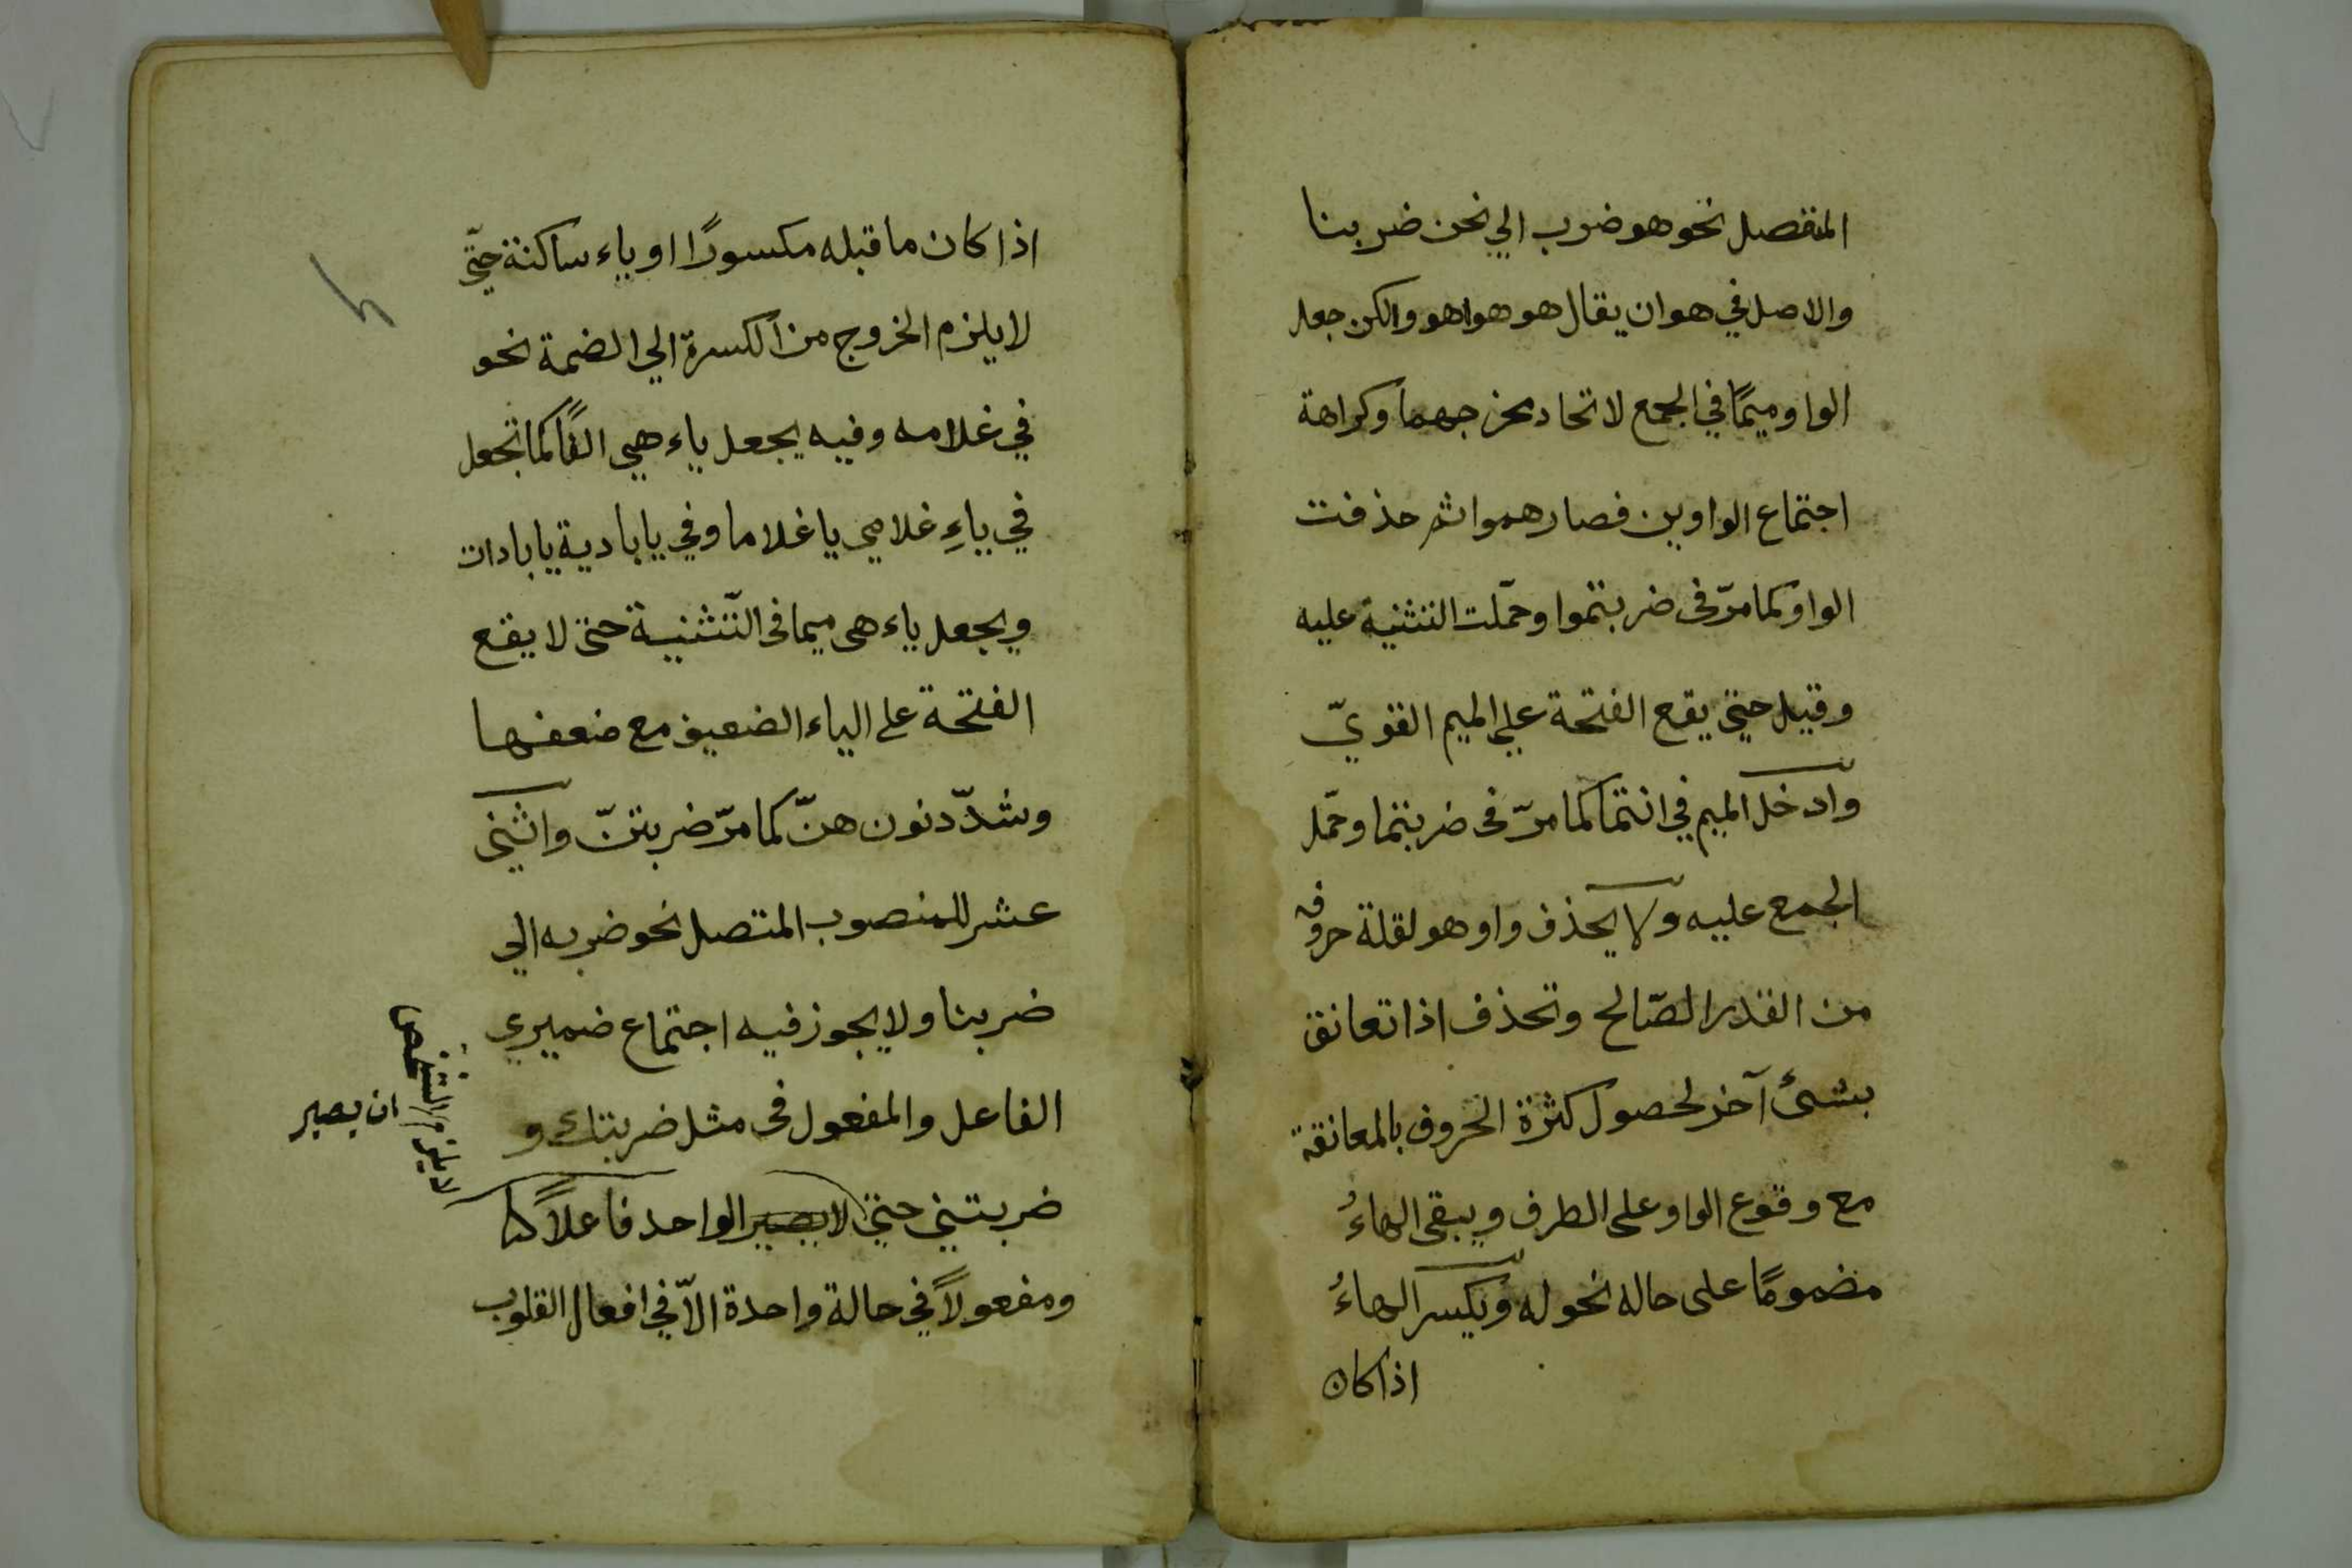 المنفصل نحو هو ضرب الي نحن ضربنا
والاصل في هو ان يقال هو هوا هوو الكن جعل
الواو ميمًا في الجمع لاتحاد مخرجهما وكراهة
اجتماع الواوين فصار هموا ثم حذفت
الواو كما مرّ فى ضربتموا وحمّلت التثنية عليه
وقيل حتي يقع الفتحة علي الميم القويّ
وادخل الميم في انتما كما مرّ فى ضربتما وحمّل
الجمع عليه ولا يحذف واو هو لقلة حروفه
من القدر الصّالح وتحذف اذا تعانق
بشئ آخر لحصول كثرة الحروف بالمعانقة
مع وقوع الواو على الطرف ويبقى الهاءُ
مضمومًا على حاله نحو له ويكسر الهاءُ
اذا كان
اذا كان ما قبله مكسورًا او ياء ساكنة حتّي
لا يلزم الخروج من الكسرة الي الضمة نحو
في غلامه وفيه يجعل ياء هي الفًا كما تجعل
في ياءِ غلامي يا غلاما وفي يا بادية يا بادات
ويجعل ياء هى ميما فى التّثنية حتى لا يقع
الفتحة على الياء الضعيف مع ضعفها
وشدّد نون هنّ كما مرّ ضربتنّ واثني
عشر للمنصوب المتصل نحو ضربه الي
ضربنا ولا يجوز فيه اجتماع ضميري
الفاعل والمفعول فى مثل ضربتك و
ضربتني حتي لا يصير الواحد فاعلاً
ومفعولاً في حالة واحدة الاّ في افعال القلوب
لا يلزم الشخص
ان يصير